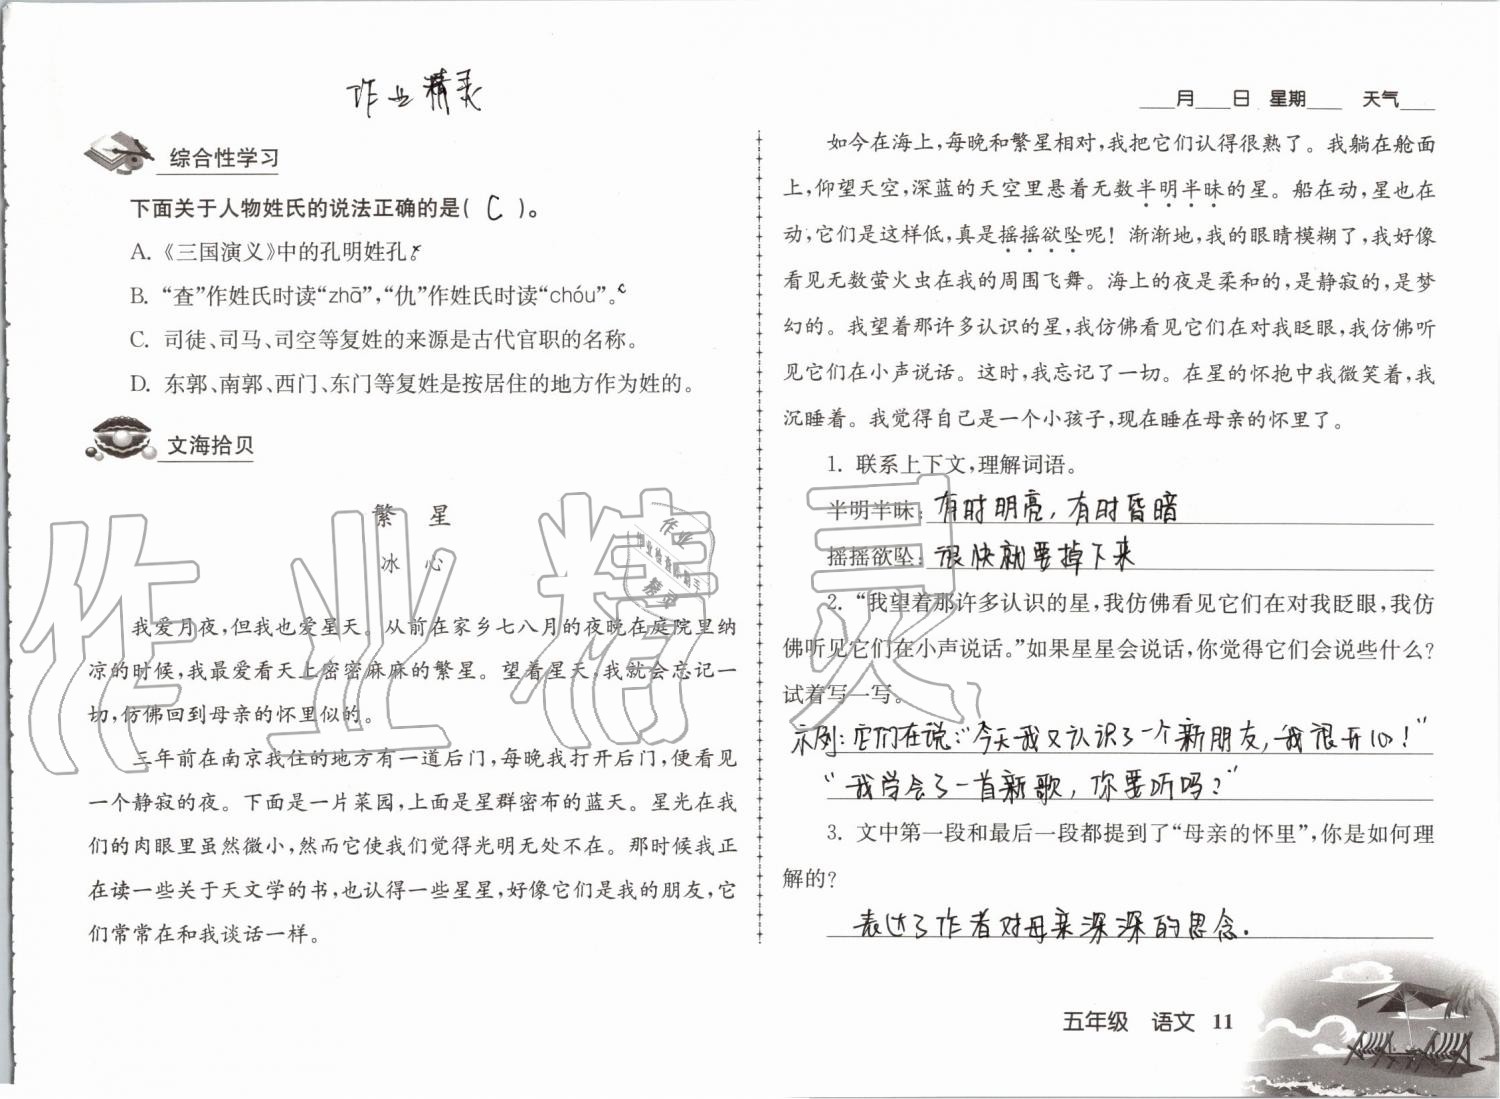 作业精灵
综合性学习
下面关于人物姓氏的说法正确的是( C )。
A.《三国演义》中的孔明姓孔。
B. “查”作姓氏时读“zhā”,“仇”作姓氏时读“chóu”。
C. 司徒、司马、司空等复姓的来源是古代官职的名称。
D. 东郭、南郭、西门、东门等复姓是按居住的地方作为姓的。
文海拾贝
繁 星
冰 心
我爱月夜,但我也爱星天。从前在家乡七八月的夜晚在庭院里纳
凉的时候,我最爱看天上密密麻麻的繁星。望着星天,我就会忘记一
切,仿佛回到母亲的怀里似的。
三年前在南京我住的地方有一道后门,每晚我打开后门,便看见
一个静寂的夜。下面是一片菜园,上面是星群密布的蓝天。星光在我
们的肉眼里虽然微小,然而它使我们觉得光明无处不在。那时候我正
在读一些关于天文学的书,也认得一些星星,好像它们是我的朋友,它
们常常在和我谈话一样。
月 日 星期 天气
如今在海上,每晚和繁星相对,我把它们认得很熟了。我躺在舱面
上,仰望天空,深蓝的天空里悬着无数半明半昧的星。船在动,星也在
动,它们是这样低,真是摇摇欲坠呢!渐渐地,我的眼睛模糊了,我好像
看见无数萤火虫在我的周围飞舞。海上的夜是柔和的,是静寂的,是梦
幻的。我望着那许多认识的星,我仿佛看见它们在对我眨眼,我仿佛听
见它们在小声说话。这时,我忘记了一切。在星的怀抱中我微笑着,我
沉睡着。我觉得自己是一个小孩子,现在睡在母亲的怀里了。
1. 联系上下文,理解词语。
半明半昧:有时明亮,有时昏暗
摇摇欲坠:很快就要掉下来
2. “我望着那许多认识的星,我仿佛看见它们在对我眨眼,我仿
佛听见它们在小声说话。”如果星星会说话,你觉得它们会说些什么?
试着写一写。
示例:它们在说:“今天我又认识了一个新朋友,我很开心!”
“我学会了一首新歌,你要听吗?”
3. 文中第一段和最后一段都提到了“母亲的怀里”,你是如何理
解的?
表达了作者对母亲深深的思念.
五年级 语文 11
作业精灵
作业
精灵